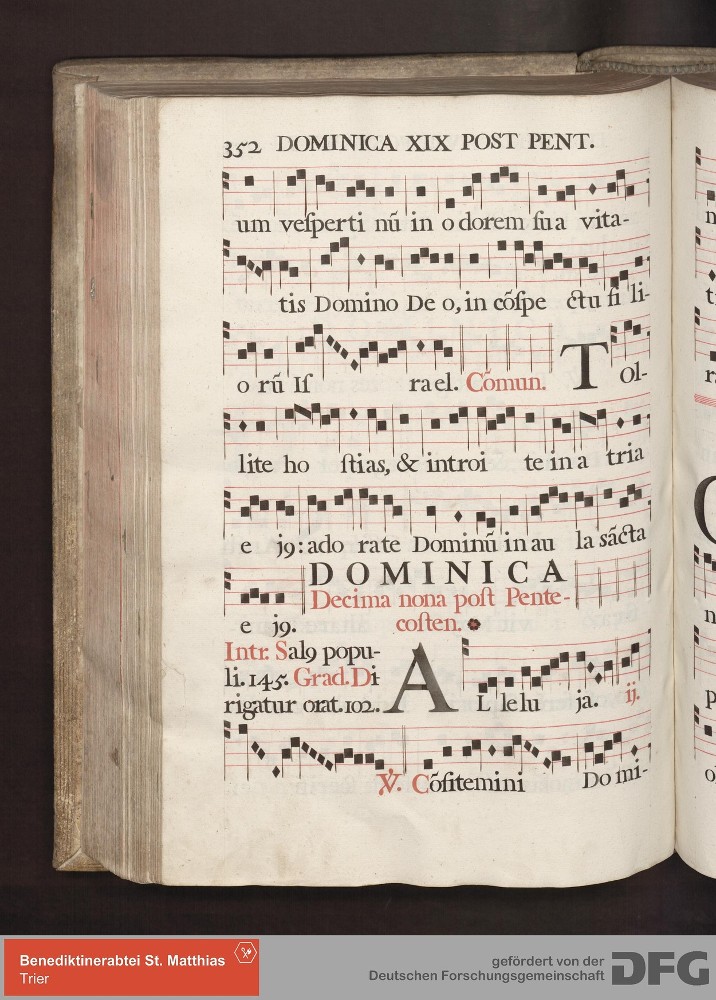 352 DOMINICA XIX POST PENT.
um veſperti nū in odorem ſua vita-
tis Domino Deo, in cōſpe ctu fi li-
o rū Iſ rael. Cōmun. Tol-
lite ho ſtias, & introi te in a tria
e j9: ado rate Dominū in au la sācta
e j9.
DOMINICA
Decima nona poſt Pente-
coſten.
Intr. Sal9 popu-
li. 145. Grad. Di
rigatur orat. 102.
AL le lu ja. ij.
℣. Cōfitemini Do mi-
Benediktinerabtei St. Matthias
Trier
gefördert von der
Deutschen Forschungsgemeinschaft
DFG